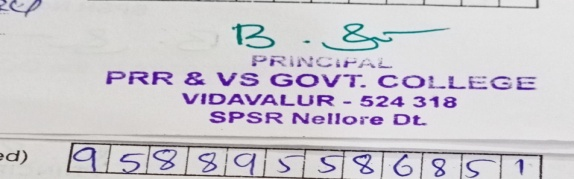 B.
PRINCIPAL
PRR & VS GOVT. COLLEGE
VIDAVALUR - 524 318
SPSR Nellore Dt.
ed) 958895586851